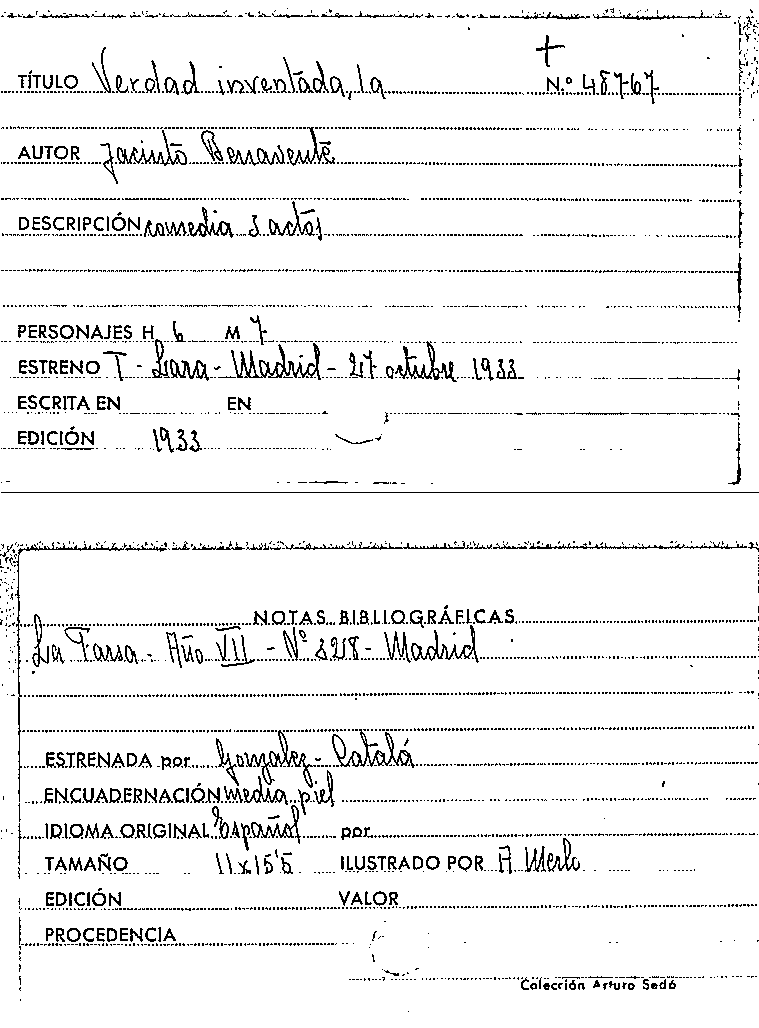 +
TÍTULO Verdad inventada, la N.º 48767
AUTOR Jacinto Benavente
DESCRIPCIÓN comedia 3 actos
PERSONAJES H 6 M 7
ESTRENO T - Lara - Madrid - 27 octubre 1933
ESCRITA EN EN
EDICIÓN 1933
NOTAS BIBLIOGRÁFICAS
La Farsa - Año VII - Nº 328 - Madrid
ESTRENADA por Gonzalez - Catalá
ENCUADERNACIÓN media piel
IDIOMA ORIGINAL Español por
TAMAÑO 11x15'5 ILUSTRADO POR A Merlo
EDICIÓN VALOR
PROCEDENCIA
Colección Arturo Sedó